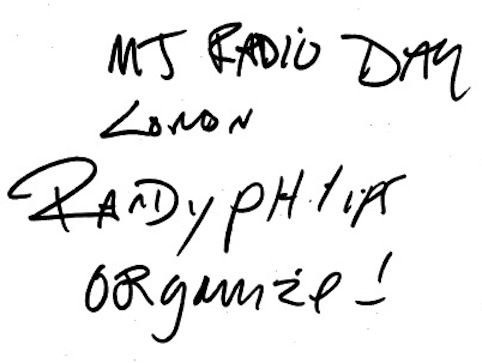 MJ RADIO DAY
LONON
RANDY PHILLIPS
ORGANIZE!